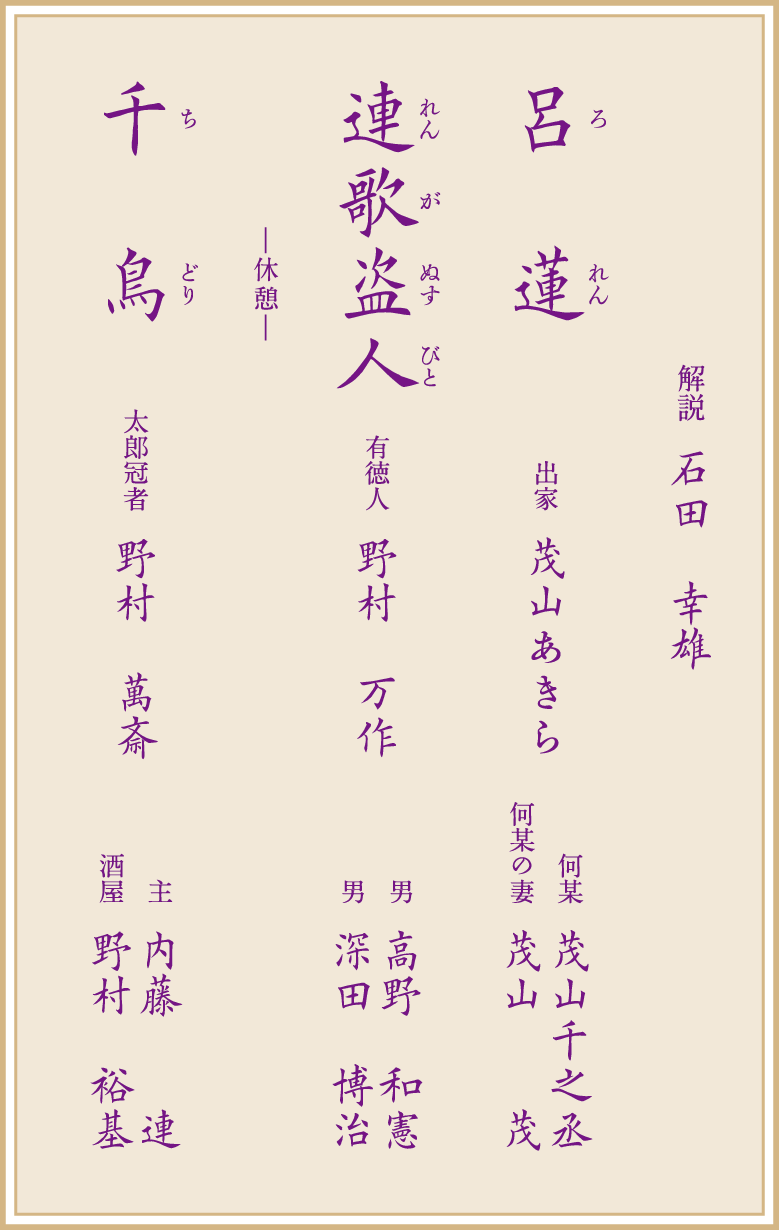 解説 石田 幸雄
呂蓮
ろ れん
出家 茂山あきら
何某 茂山千之丞
何某の妻 茂山 茂
連歌盗人
れん が ぬす びと
有徳人 野村 万作
男 高野 和憲
男 深田 博治
―休憩―
千鳥
ち どり
太郎冠者 野村 萬斎
主 内藤 連
酒屋 野村 裕基